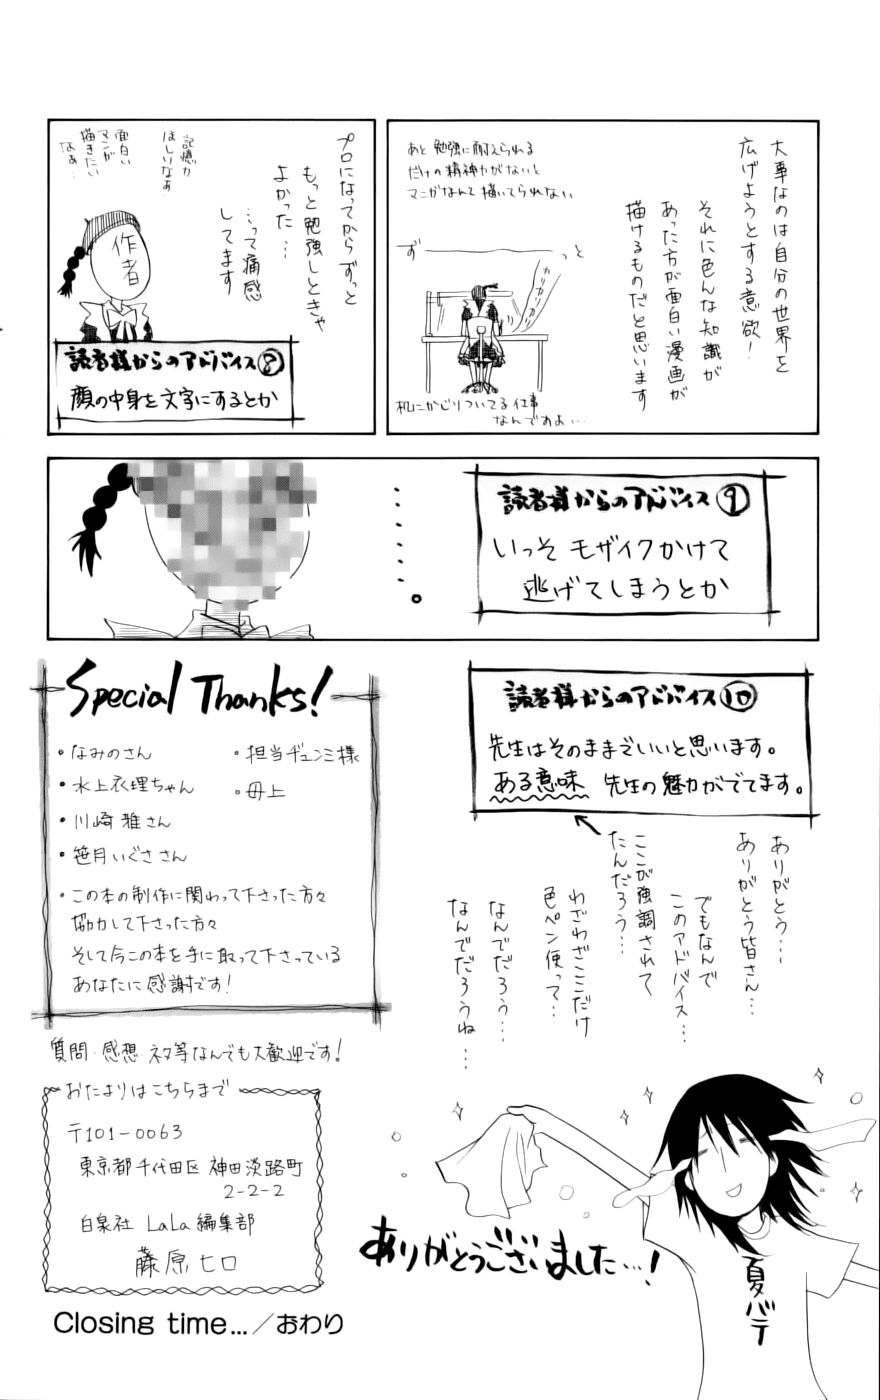 大事なのは自分の世界を
広げようとする意欲！
それに色んな知識が
あった方が面白い漫画が
描けるものだと思います
あと勉強に耐えられる
だけの精神力がないと
マンガなんて描いてられない
ず
っと
カリカリカリカリ
机にかじりついてる仕事
なんですよ…
プロになってからずっと
もっと勉強しときゃ
よかった…
…って痛感
してます
記憶力
ほしいなぁ
面白い
マンガ
描きたい
なぁ…
作者
読者様からのアドバイス⑧
顔の中身を文字にするとか
読者様からのアドバイス⑨
いっそモザイクかけて
逃げてしまうとか
・・・・・。
読者様からのアドバイス⑩
先生はそのままでいいと思います。
ある意味 先生の魅力がでてます。
ありがとう…
ありがとう皆さん…
でもなんで
このアドバイス…
ここが強調されて
たんだろう…
わざわざここだけ
色ペン使って…
なんでだろう…
なんでだろうね…
Special Thanks!
・なみのさん
・水上衣理ちゃん
・川崎雅さん
・笹月いぐささん
・担当ヂュンミ様
・母上
・この本の制作に関わって下さった方々
協力して下さった方々
そして今この本を手に取って下さっている
あなたに感謝です！
質問・感想・ネタ等なんでも大歓迎です！
おたよりはこちらまで
〒101-0063
東京都千代田区神田淡路町
2-2-2
白泉社 LaLa編集部
藤原ヒロ
ありがとうございました…！
夏バテ
Closing time…／おわり